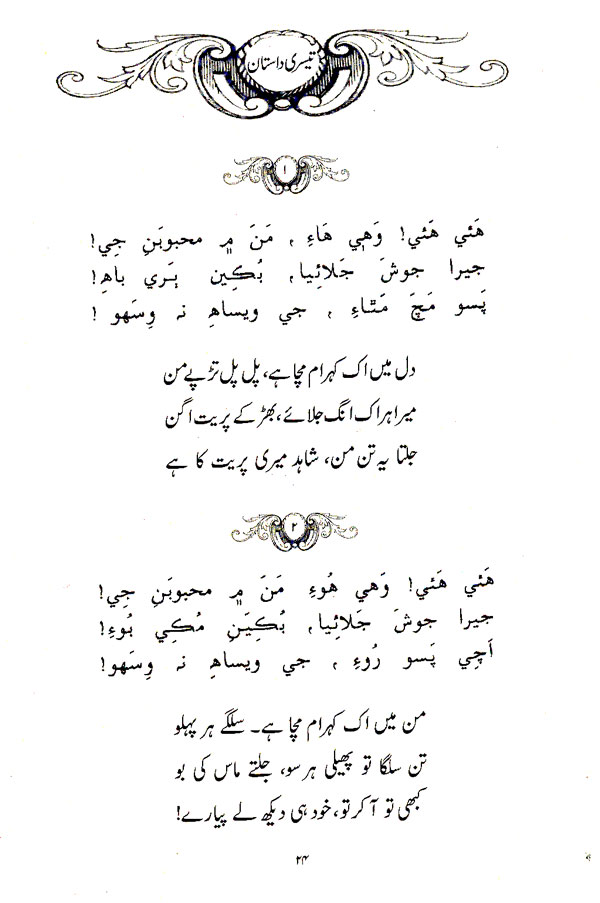 تیسری داستان
۱
هَئي هَئي! وَهِي هَاءِ ، مَنَ ۾ محبوبَنِ جِي!
جيرا جوشَ جَلائِيا، بُڪِين ٻَري باهِ!
پَسو مَچَ مَٿاءِ ، جي ويساهِ نہ وِسَهو !
دل میں اک کہرام مچا ہے، پل پل تڑپے من
میرا ہر اک انگ جلائے، بھڑ کے پریت اگن
جلتا یہ تن من، شاہد میری پریت کا ہے
۲
هَئي هَئي! وَهِي هُوءِ مَنَ ۾ محبوبَنِ جِي!
جيرا جوشَ جَلائِيا، بُڪِيَنِ مُڪِي بُوءِ!
اَچِي پَسو رُوءِ ، جي ويساهِ نہ وِسَهو!
من میں اک کہرام مچا ہے۔ سلگے ہر پہلو
تن سلگا تو پھیلی ہر سو، جلتے ماس کی بو
کبھی تو آ کر تو، خود ہی دیکھ لے پیارے!
۲۴